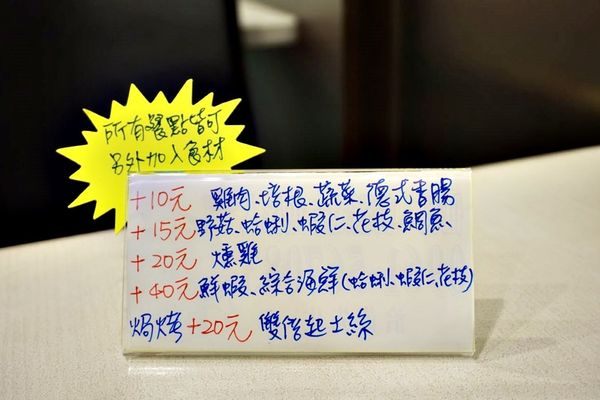 所有餐點皆可
另外加入食材
+10元 雞肉、培根、蔬菜、德式香腸
+15元 野菇、蛤蜊、蝦仁、花枝、鯛魚、
+20元 燻雞
+40元 鮮蝦、綜合海鮮(蛤蜊、蝦仁、花枝)
焗烤+20元 雙倍起士絲